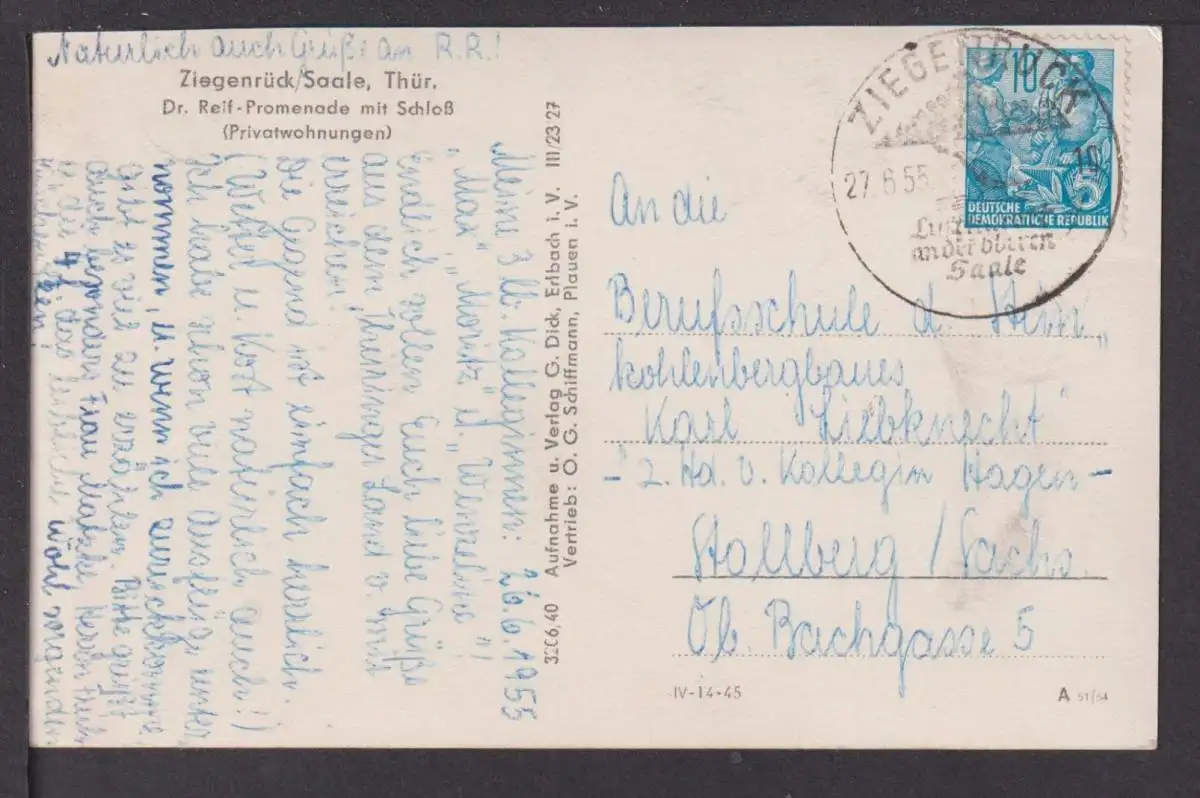 Natürlich auch Grüße an R.R.!
Ziegenrück/Saale, Thür.
Dr. Reif-Promenade mit Schloß
(Privatwohnungen)
Meine 3 lb. Kolleginnen: 26.6.1955
"Max", "Moritz" u. "Wenzeline"!
Endlich sollen Euch liebe Grüße
aus dem Thüringer Land v. mir
erreichen!
Die Gegend ist einfach herrlich
(Wetter u. Kost natürlich auch!)
Ich habe schon viele Ausflüge unter-
nommen u. wenn ich zurückkomme,
gibt es viel zu erzählen. Bitte grüßt
auch besonders Frau Herrn
u. die 4 
wohl 
32C6,40 Aufnahme u. Verlag G. Dick, Erlbach i. V. III/23 27
Vertrieb: O. G. Schiffmann, Plauen i. V.
ZIEGENRÜCK
27.6.55 10
an der oberen
Saale
10
5
DEUTSCHE
DEMOKRATISCHE REPUBLIK
An die
Berufsschule d. Stein-
kohlenbergbaues
"Karl Liebknecht"
- z. Hd. v. Kollegin Hagen -
Stollberg / Sachs.
Ob. Bachgasse 5
IV-14-45
A 51/54